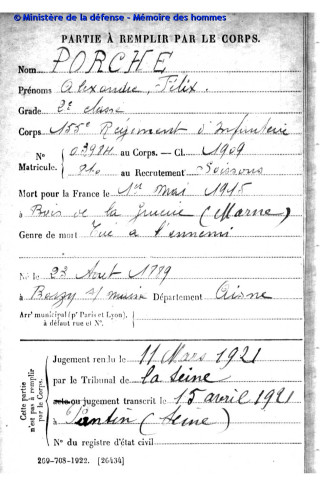 © Ministère de la défense - Mémoire des hommes
PARTIE À REMPLIR PAR LE CORPS.
Nom PORCHE
Prénoms Alexandre, Félix.
Grade 2e classe
Corps 155e Régiment d'Infanterie
N° au Corps. — Cl. 1909
Matricule. au Recrutement Soissons
Mort pour la France le 1er mai 1915
à Bois de la Grurie (Marne)
Genre de mort Tué à l'ennemi
Né le 23 Août
à Département Aisne
Arrt municipal (pr Paris et Lyon),
à défaut rue et N°.
Cette partie
n'est pas à remplir
par le Corps.
Jugement rendu le 11 Mars 1921
par le Tribunal de la Seine
acte ou jugement transcrit le 15 avril 1921
à Pantin (Seine)
N° du registre d'état civil
269-708-1922. [26434]